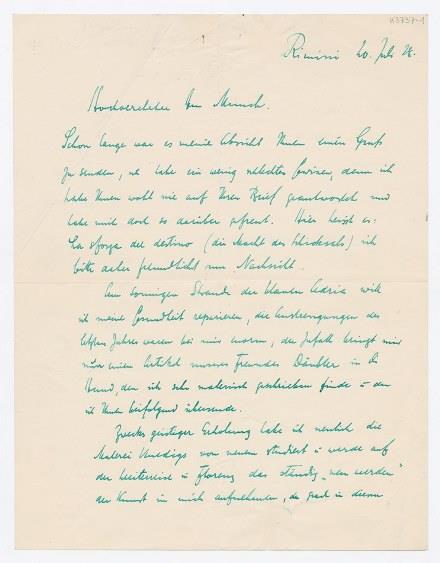 K3737-1
Rimini 20. Juli 26.
Hochverehrter Herr Munch.
Schon lange war es meine Absicht Ihnen einen Gruß
zu senden, ich habe ein wenig schlechtes Gewissen, denn ich
habe Ihnen wohl nie auf Ihren Brief geantwortet und
habe mich doch so darüber gefreut. Hier heisst es:
La sforza del destino (die Macht des Schicksals) ich
bitte daher freundlichst um Nachsicht.
Am sonnigen Strande der blauen Adria will
ich meine Gesundheit reparieren, die Anstrengungen des
letzten Jahres waren bei mir enorm, der Zufall bringt mir
nun einen Artikel unseres Freundes Däubler in die
Hand, den ich sehr malerisch geschrieben finde u den
ich Ihnen beifolgend übersende.
Zwecks geistiger Erholung habe ich neulich die
Malerei Venedigs von neuem studiert u werde auf
der Weiterreise in Florenz das ständig "neu werden"
der Kunst in mich aufnehmen, da grad in diesem